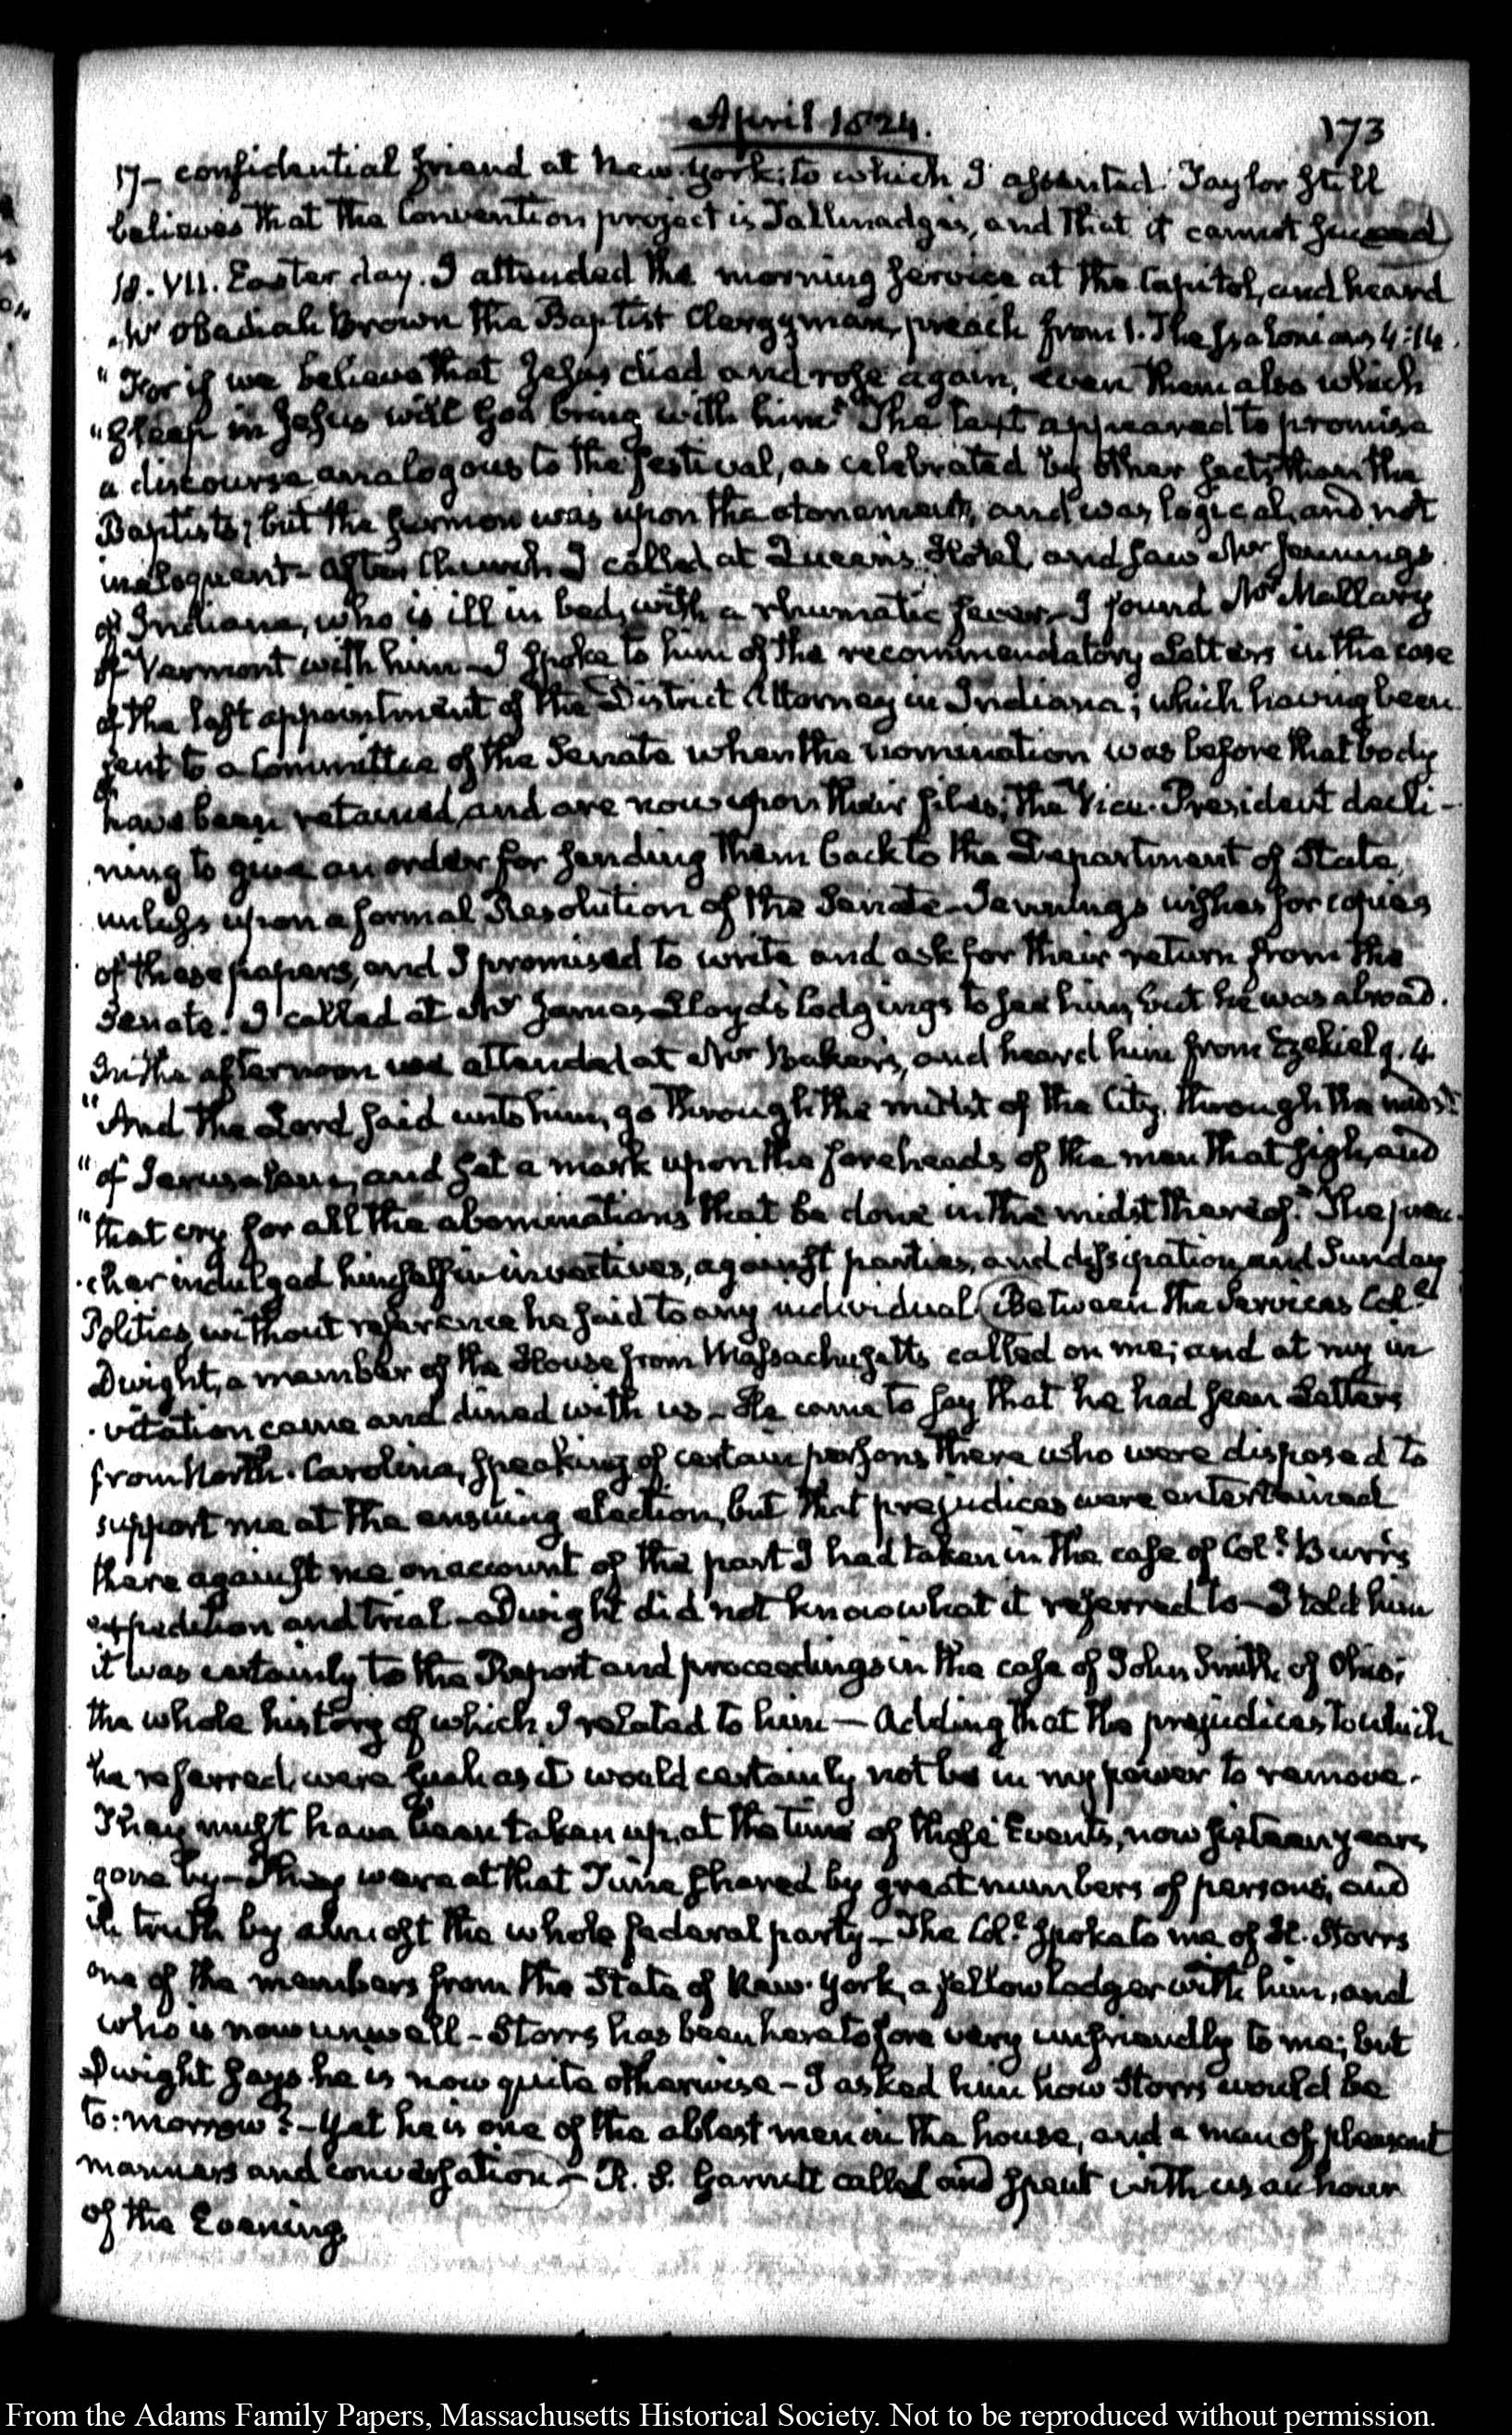 April 1824. 173
17— confidential friend at New-York; to which I assented. Taylor still
believes that the Convention project is Tallmadge's, and that it cannot succeed
18. VII. Easter day. I attended the morning service at the Capitol, and heard
Mr Obadiah Brown the Baptist Clergyman, preach from 1. Thessalonians 4:14.
"For if we believe that Jesus died and rose again, even them also which
"sleep in Jesus will God bring with him." The text appeared to promise
a discourse analogous to the festival, as celebrated by other sects than the
Baptists; but the sermon was upon the atonement, and was logical, and not
ineloquent— After Church I called at Queen's Hotel, and saw Mr Jennings
of Indiana, who is ill in bed, with a rhumatic fever— I found Mr Mallary
of Vermont with him— I spoke to him of the recommendatory Letters in the case
of the last appointment of the District Attorney in Indiana; which having been
sent to a Committee of the Senate when the nomination was before that body
have been retained, and are now upon their files; the Vice-President decli-
ning to give an order for sending them back to the Department of State,
unless upon a formal Resolution of the Senate— Jennings wishes for copies
of these papers, and I promised to write and ask for their return from the
Senate. I called at Mr James Lloyd's lodgings to see him, but he was abroad.
In the afternoon we attended at Mr Baker's, and heard him from Ezekiel 9. 4
"And the Lord said unto him, go through the midst of the City, through the midst
"of Jerusalem, and set a mark upon the foreheads of the men that sigh, and
"that cry for all the abominations that be done in the midst thereof." The prea-
cher indulged himself in invectives, against parties, and dissipation, and Sunday
Politics, without reference he said to any individual. Between the Services Coll
Dwight, a member of the House from Massachusetts called on me; and at my in
vitation came and dined with us— He came to say that he had seen Letters
from North-Carolina, speaking of certain persons there who were disposed to
support me at the ensuing election, but that prejudices were entertained
there against me on account of the part I had taken in the case of Coll Burr's
expedition and trial— Dwight did not know what it referred to— I told him
it was certainly to the Report and proceedings in the case of John Smith of Ohio;
the whole history of which I related to him— Adding that the prejudices to which
he referred, were such as it would certainly not be in my power to remove.
They must have been taken up, at the time of those Events, now sixteen years
gone by— They were at that Time shared by great numbers of persons, and
in truth by almost the whole federal party— The Coll spoke to me of H. Storrs
one of the members from the State of New-York, a fellow lodger with him, and
who is now unwell— Storrs has been heretofore very unfriendly to me; but
Dwight says he is now quite otherwise— I asked him how Storrs would be
to:morrow?— Yet he is one of the ablest men in the house, and a man of pleasant
manners and conversation— R. S. Garnett called and spent with us an hour
of the Evening.
From the Adams Family Papers, Massachusetts Historical Society. Not to be reproduced without permission.